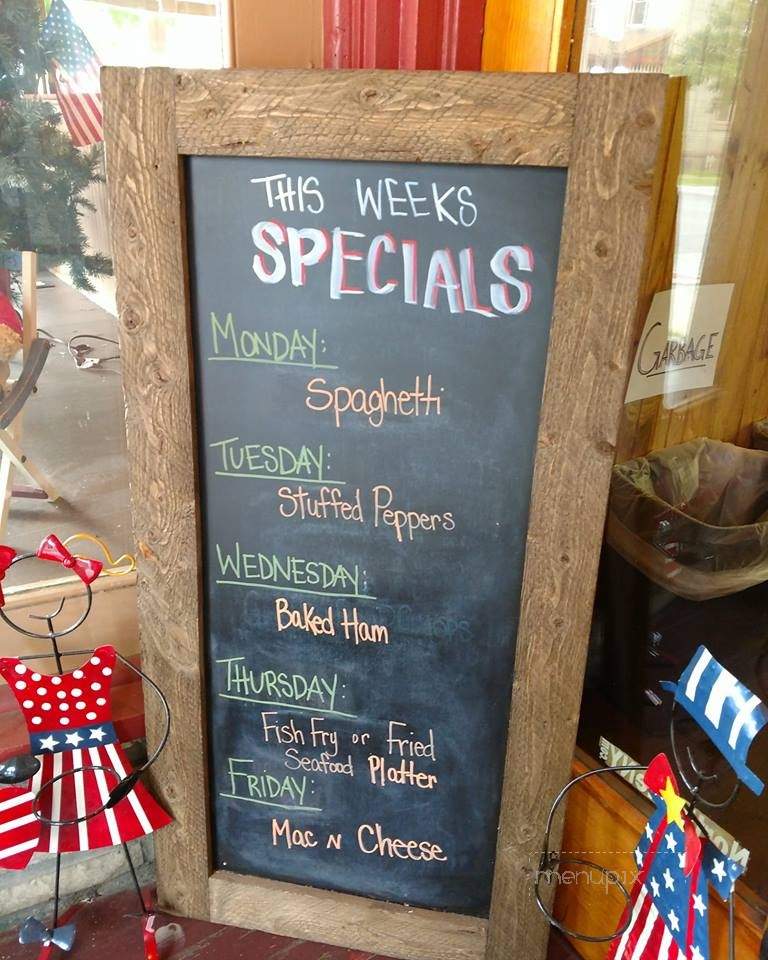 THIS WEEKS
SPECIALS
MONDAY:
Spaghetti
TUESDAY:
Stuffed Peppers
WEDNESDAY:
Baked Ham
THURSDAY:
Fish Fry or Fried
Seafood Platter
FRIDAY:
Mac N Cheese
GARBAGE
menupix